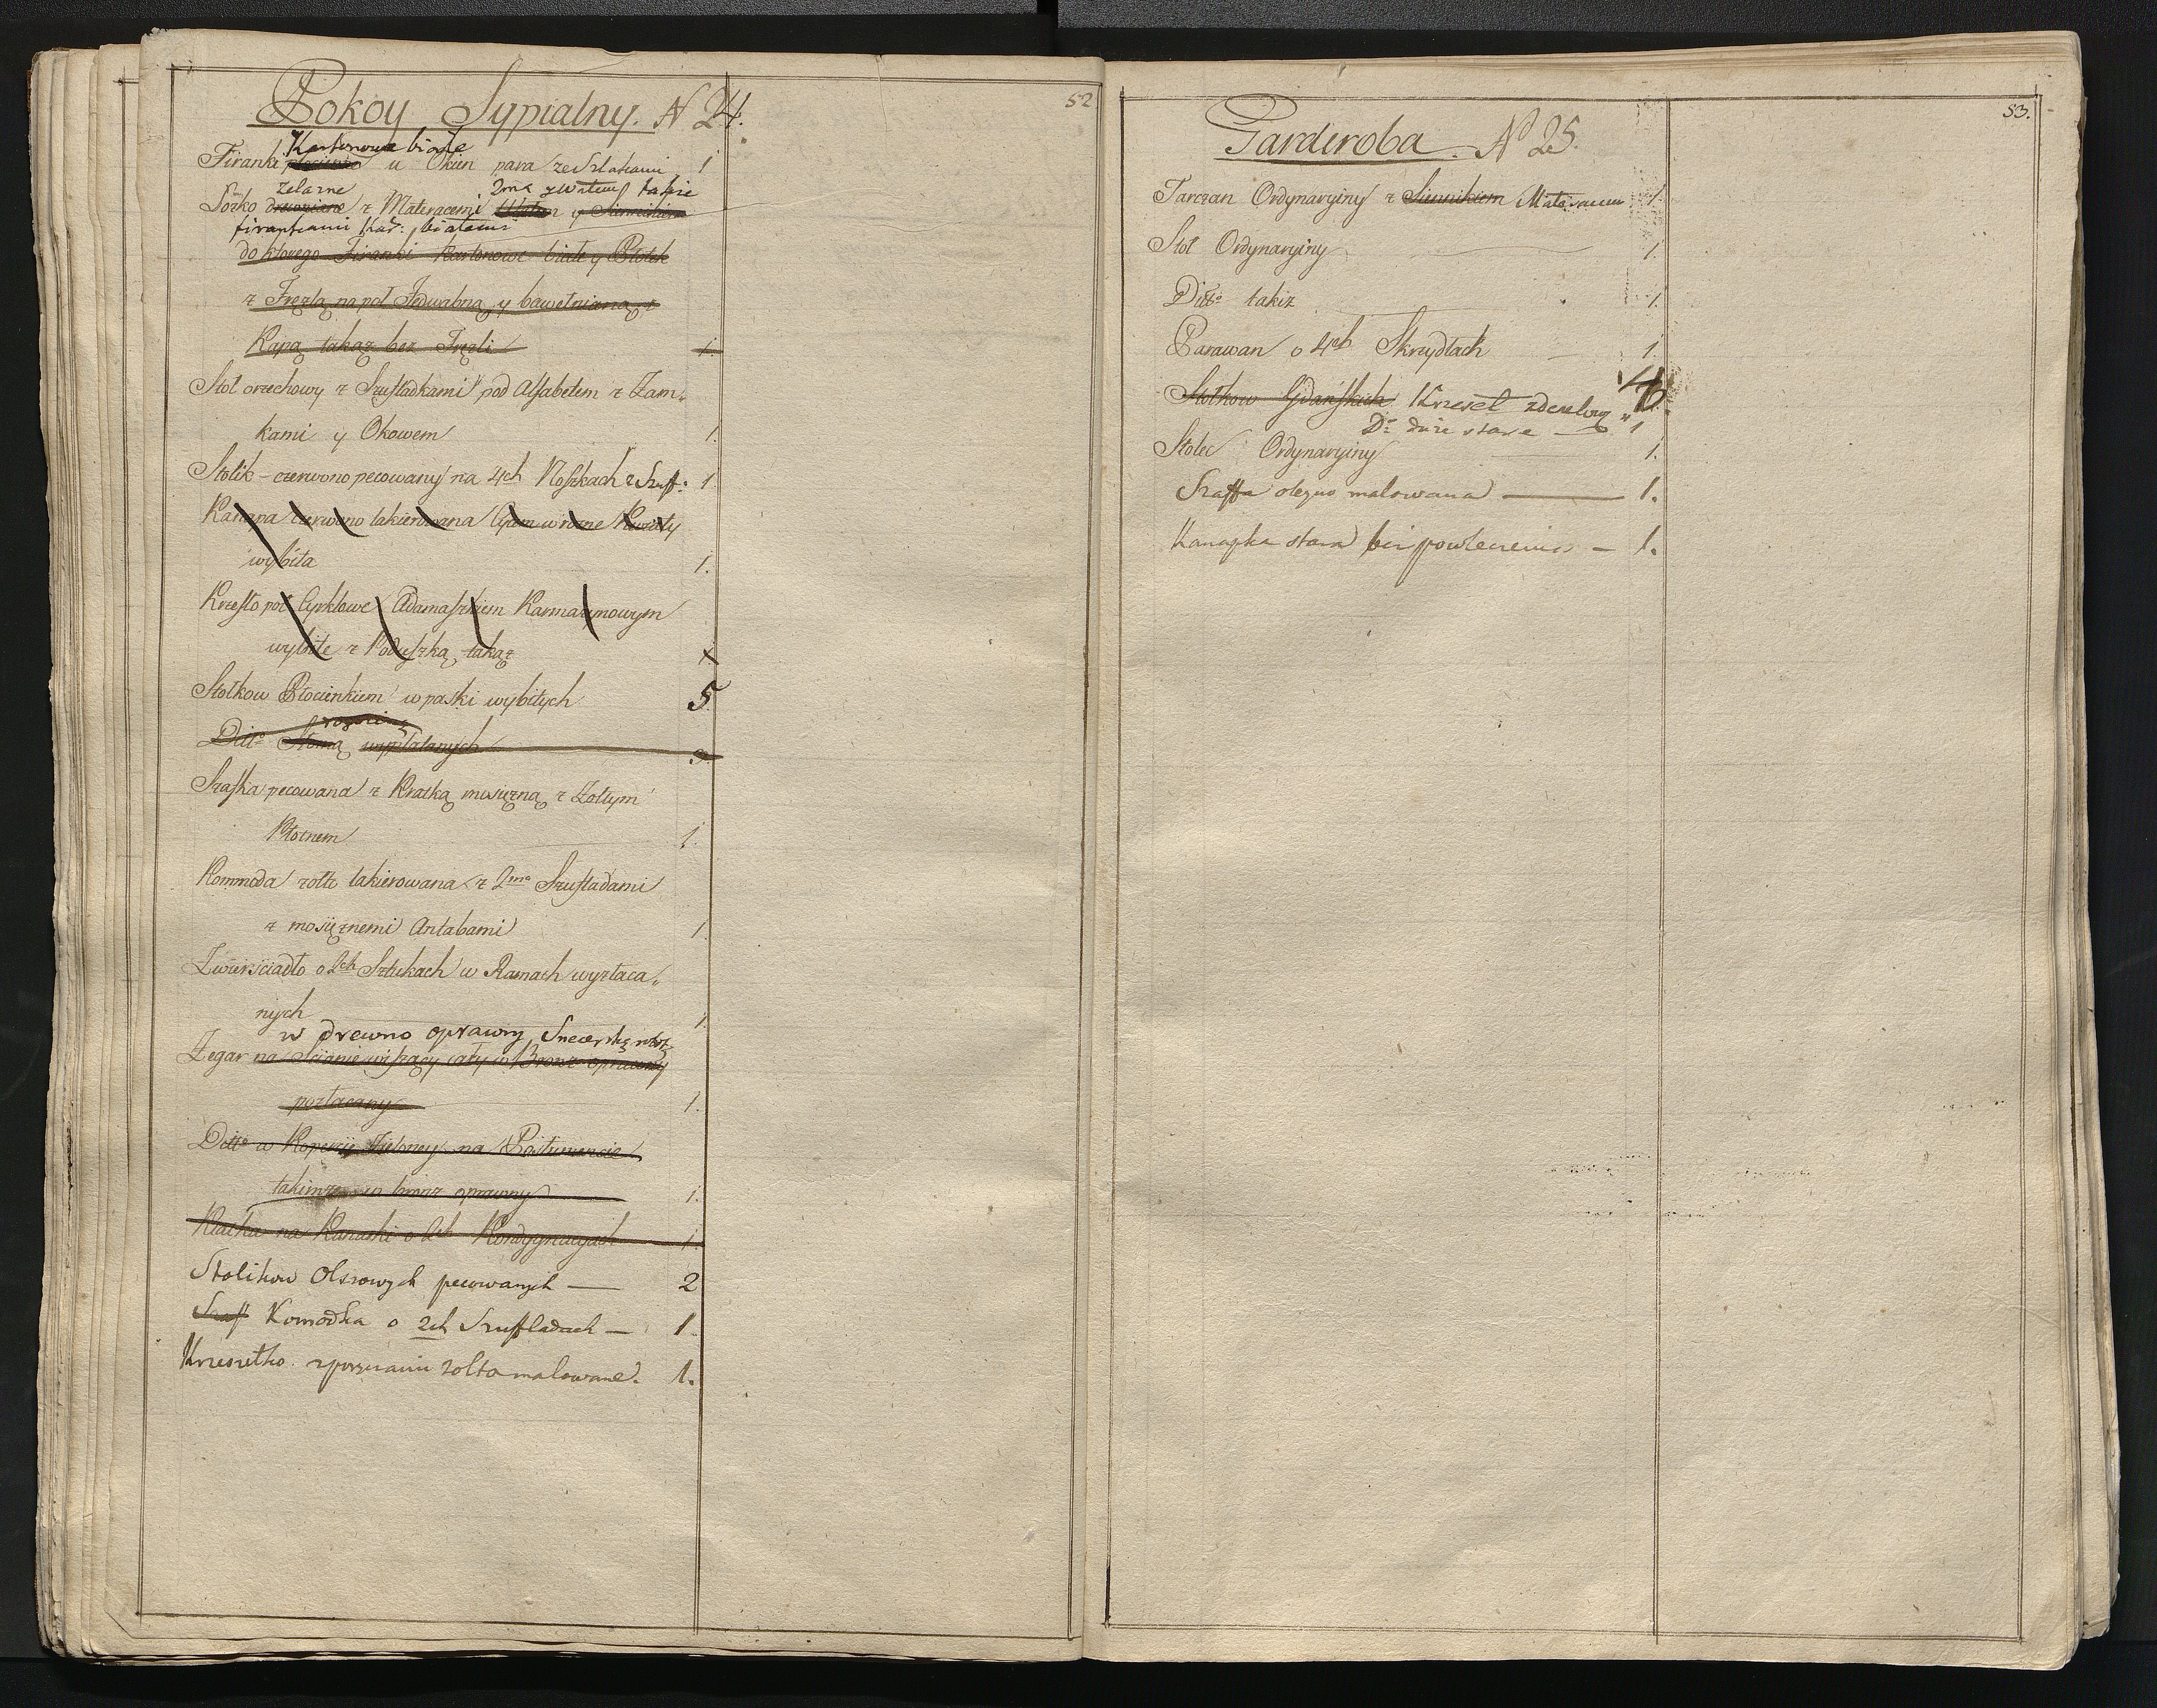 52
Pokoy Sypialny. N 24.
Kartonowe białe
Firanki u Okien para ze Szlakami 1
żelazne 2ma z Wałem także
Łożko drewniane z Materacemi y Siennikiem
firankami Kar: białemi
do ktorego Firanki Kartonowe białe y Płotek
z Fręzlą na poł Jedwabną y bawełnianą z
Kapą takąż bez Fręzli 1.
Stoł orzechowy z Szufladkami pod Alfabetem z Zam„
kami y Okowem 1.
Stolik – czerwono pecowany na 4ch Noszkach z Szuf: 1
Kanapa czerwono lakierowana Cycem w rożne Kwiaty
wybita 1.
Krzesło poł Cyrklowe Adamaszkiem Karmazynowym
wybite z Poduszką takąż 1
Stołkow Płocienkiem w paski wybitych 5
Ditto Słomą wyplatanych 9
Szafka pecowana z Kratką mosiężną z Zołtym
Płotnem 1.
Kommoda żołto lakierowana z 2ma Szufladami
z mosiężnemi Antabami 1
Zwierściadło o 2ch Sztukach w Ramach wyzłaca„
nych 1.
w drewno oprawny Snycerską robot:
Zegar na Scianie wiszący cały w Bronz oprawny
pozłacany 1.
Ditto w Kopercie Zieloney na Postumencie
takimże w bronz oprawny 1.
Klatka na Kanarki o 2ch Kondygnacyach 1.
Stolikow Olszowych pecowanych — 2
Szaf Komodka o 2ch Szufladach — 1
Krzesełko z poręczami żołto malowane. 1.
53.
Garderoba. N 25.
Tarczan Ordynaryiny z Siennikiem Materacem 1.
Stoł Ordynaryiny 1.
Ditto takiż 1.
Parawan o 4ch Skrzydłach 1.
Stołkow Gdańskich Krzeseł 4
Do duże stare — 1
Stolec Ordynaryiny 1.
Szaffa oleyno malowana — 1.
Kanapka stara bez powleczenia — 1.